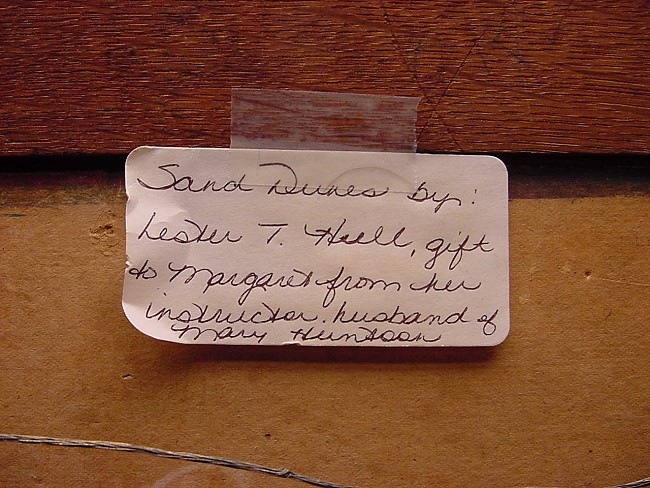 Sand Dunes by:
Lester T. Hull, gift
to Margaret from her
instructor. husband of
Mary Huntoon